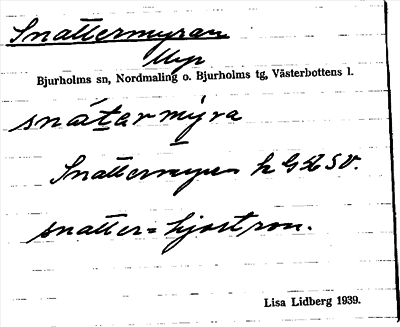 Snattermyran
Myr
Bjurholms sn, Nordmaling o. Bjurholms tg, Västerbottens l.
snátarmýra
Snattermyren k G Ä S V.
snatter = hjortron.
Lisa Lidberg 1939.